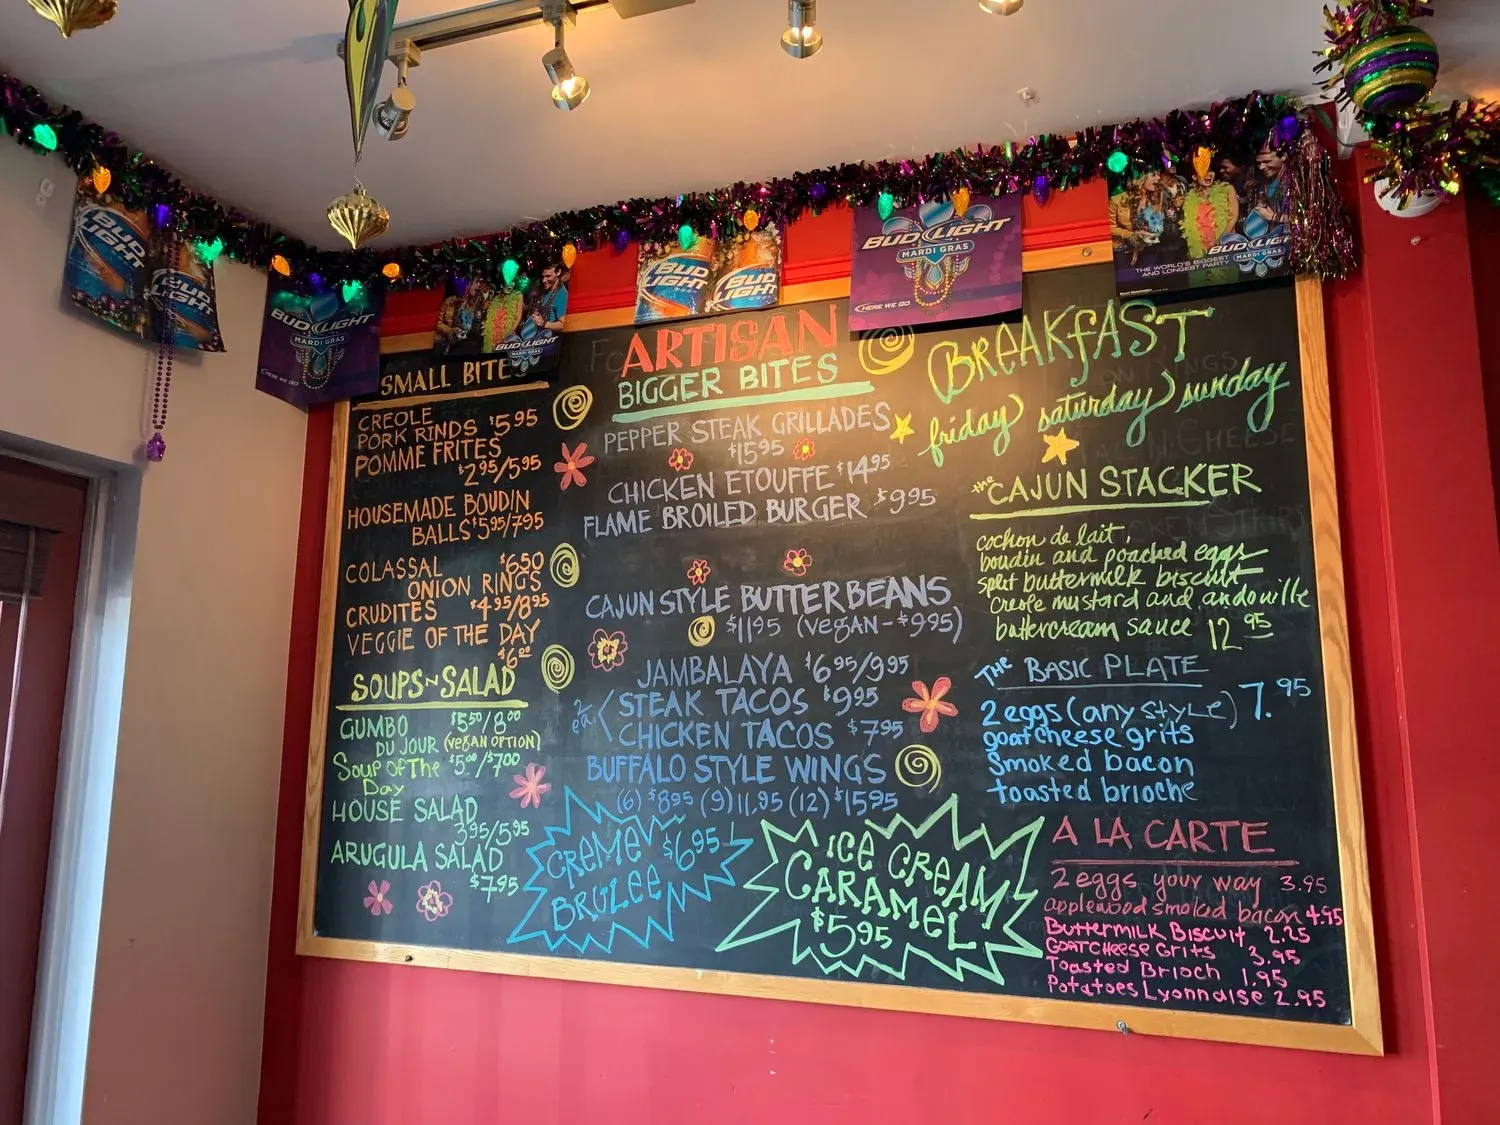 BUD LIGHT
BUD LIGHT
BUD LIGHT
MARDI GRAS
HERE WE GO
BUD LIGHT
MARDI GRAS
BUD LIGHT
BUD LIGHT
BUD LIGHT
MARDI GRAS
HERE WE GO
THE WORLD'S BIGGEST
AND LONGEST PARTY
BUD LIGHT
MARDI GRAS
SMALL BITE
CREOLE
PORK RINDS $5.95
POMME FRITES
$2.95/5.95
HOUSEMADE BOUDIN
BALLS $5.95/7.95
COLASSAL $6.50
ONION RINGS
CRUDITES $4.95/8.95
VEGGIE OF THE DAY
$6.00
SOUPS~SALAD
GUMBO $5.50/8.00
DU JOUR (VEGAN OPTION)
SOUP OF THE $5.00/$7.00
DAY
HOUSE SALAD
3.95/5.95
ARUGULA SALAD
$7.95
ARTISAN
BIGGER BITES
PEPPER STEAK GRILLADES
$15.95
CHICKEN ETOUFFE $14.95
FLAME BROILED BURGER $9.95
CAJUN STYLE BUTTERBEANS
$11.95 (VEGAN-$9.95)
JAMBALAYA $6.95/9.95
2 ea < STEAK TACOS $9.95
CHICKEN TACOS $7.95
BUFFALO STYLE WINGS
(6) $8.95 (9) 11.95 (12) $15.95
CREME $6.95
BRULEE
ICE CREAM
CARAMEL
$5.95
BREAKFAST
friday) saturday) sunday
the CAJUN STACKER
cochon de lait,
boudin and poached eggs
split buttermilk biscuit
creole mustard and andouille
buttercream sauce 12.95
THE BASIC PLATE
2 eggs (any STYLE) 7.95
goatcheese grits
Smoked bacon
toasted brioche
A LA CARTE
2 eggs your way 3.95
applewood smoked bacon 4.95
Buttermilk Biscuit 2.25
Goatcheese Grits 3.95
Toasted Brioch 1.95
Potatoes Lyonnaise 2.95